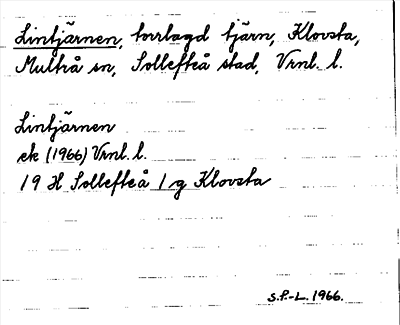 Lintjärnen, torrlagd tjärn, Klovsta,
Multrå sn, Sollefteå stad, Vrnl. l.
Lintjärnen
ek (1966) Vrnl. l.
19 H Sollefteå 1 g Klovsta
S.P.-L. 1966.